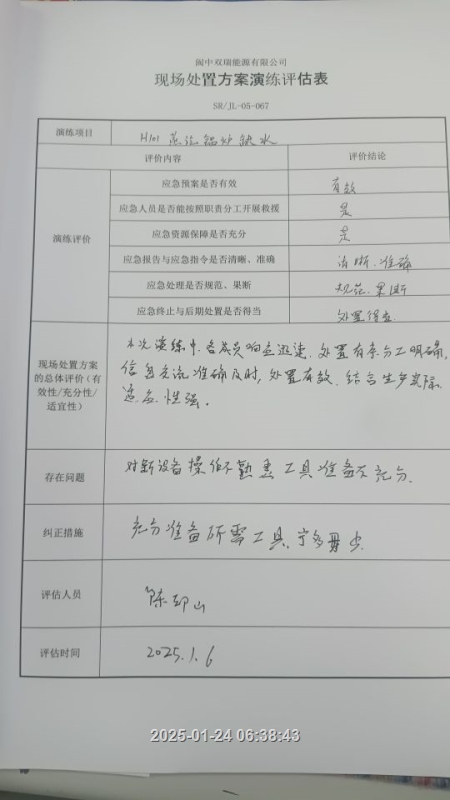 阆中双瑞能源有限公司
现场处置方案演练评估表
SR/JL-05-067
演练项目
H101 蒸汽锅炉缺水
评价内容
评价结论
演练评价
应急预案是否有效
有效
应急人员是否能按照职责分工开展救援
是
应急资源保障是否充分
是
应急报告与应急指令是否清晰、准确
清晰、准确
应急处理是否规范、果断
规范、果断
应急终止与后期处置是否得当
处置得当
现场处置方案
的总体评价(有
效性/充分性/
适宜性)
本次演练中各成员响应迅速、处置有序分工明确,
信息交流准确及时,处置有效、结合生产实际
适应性强。
存在问题
对新设备操作不熟悉 工具准备不充分.
纠正措施
充分准备所需工具,宁多毋少
评估人员
陈
山
评估时间
2025.1.6
2025-01-24 06:38:43